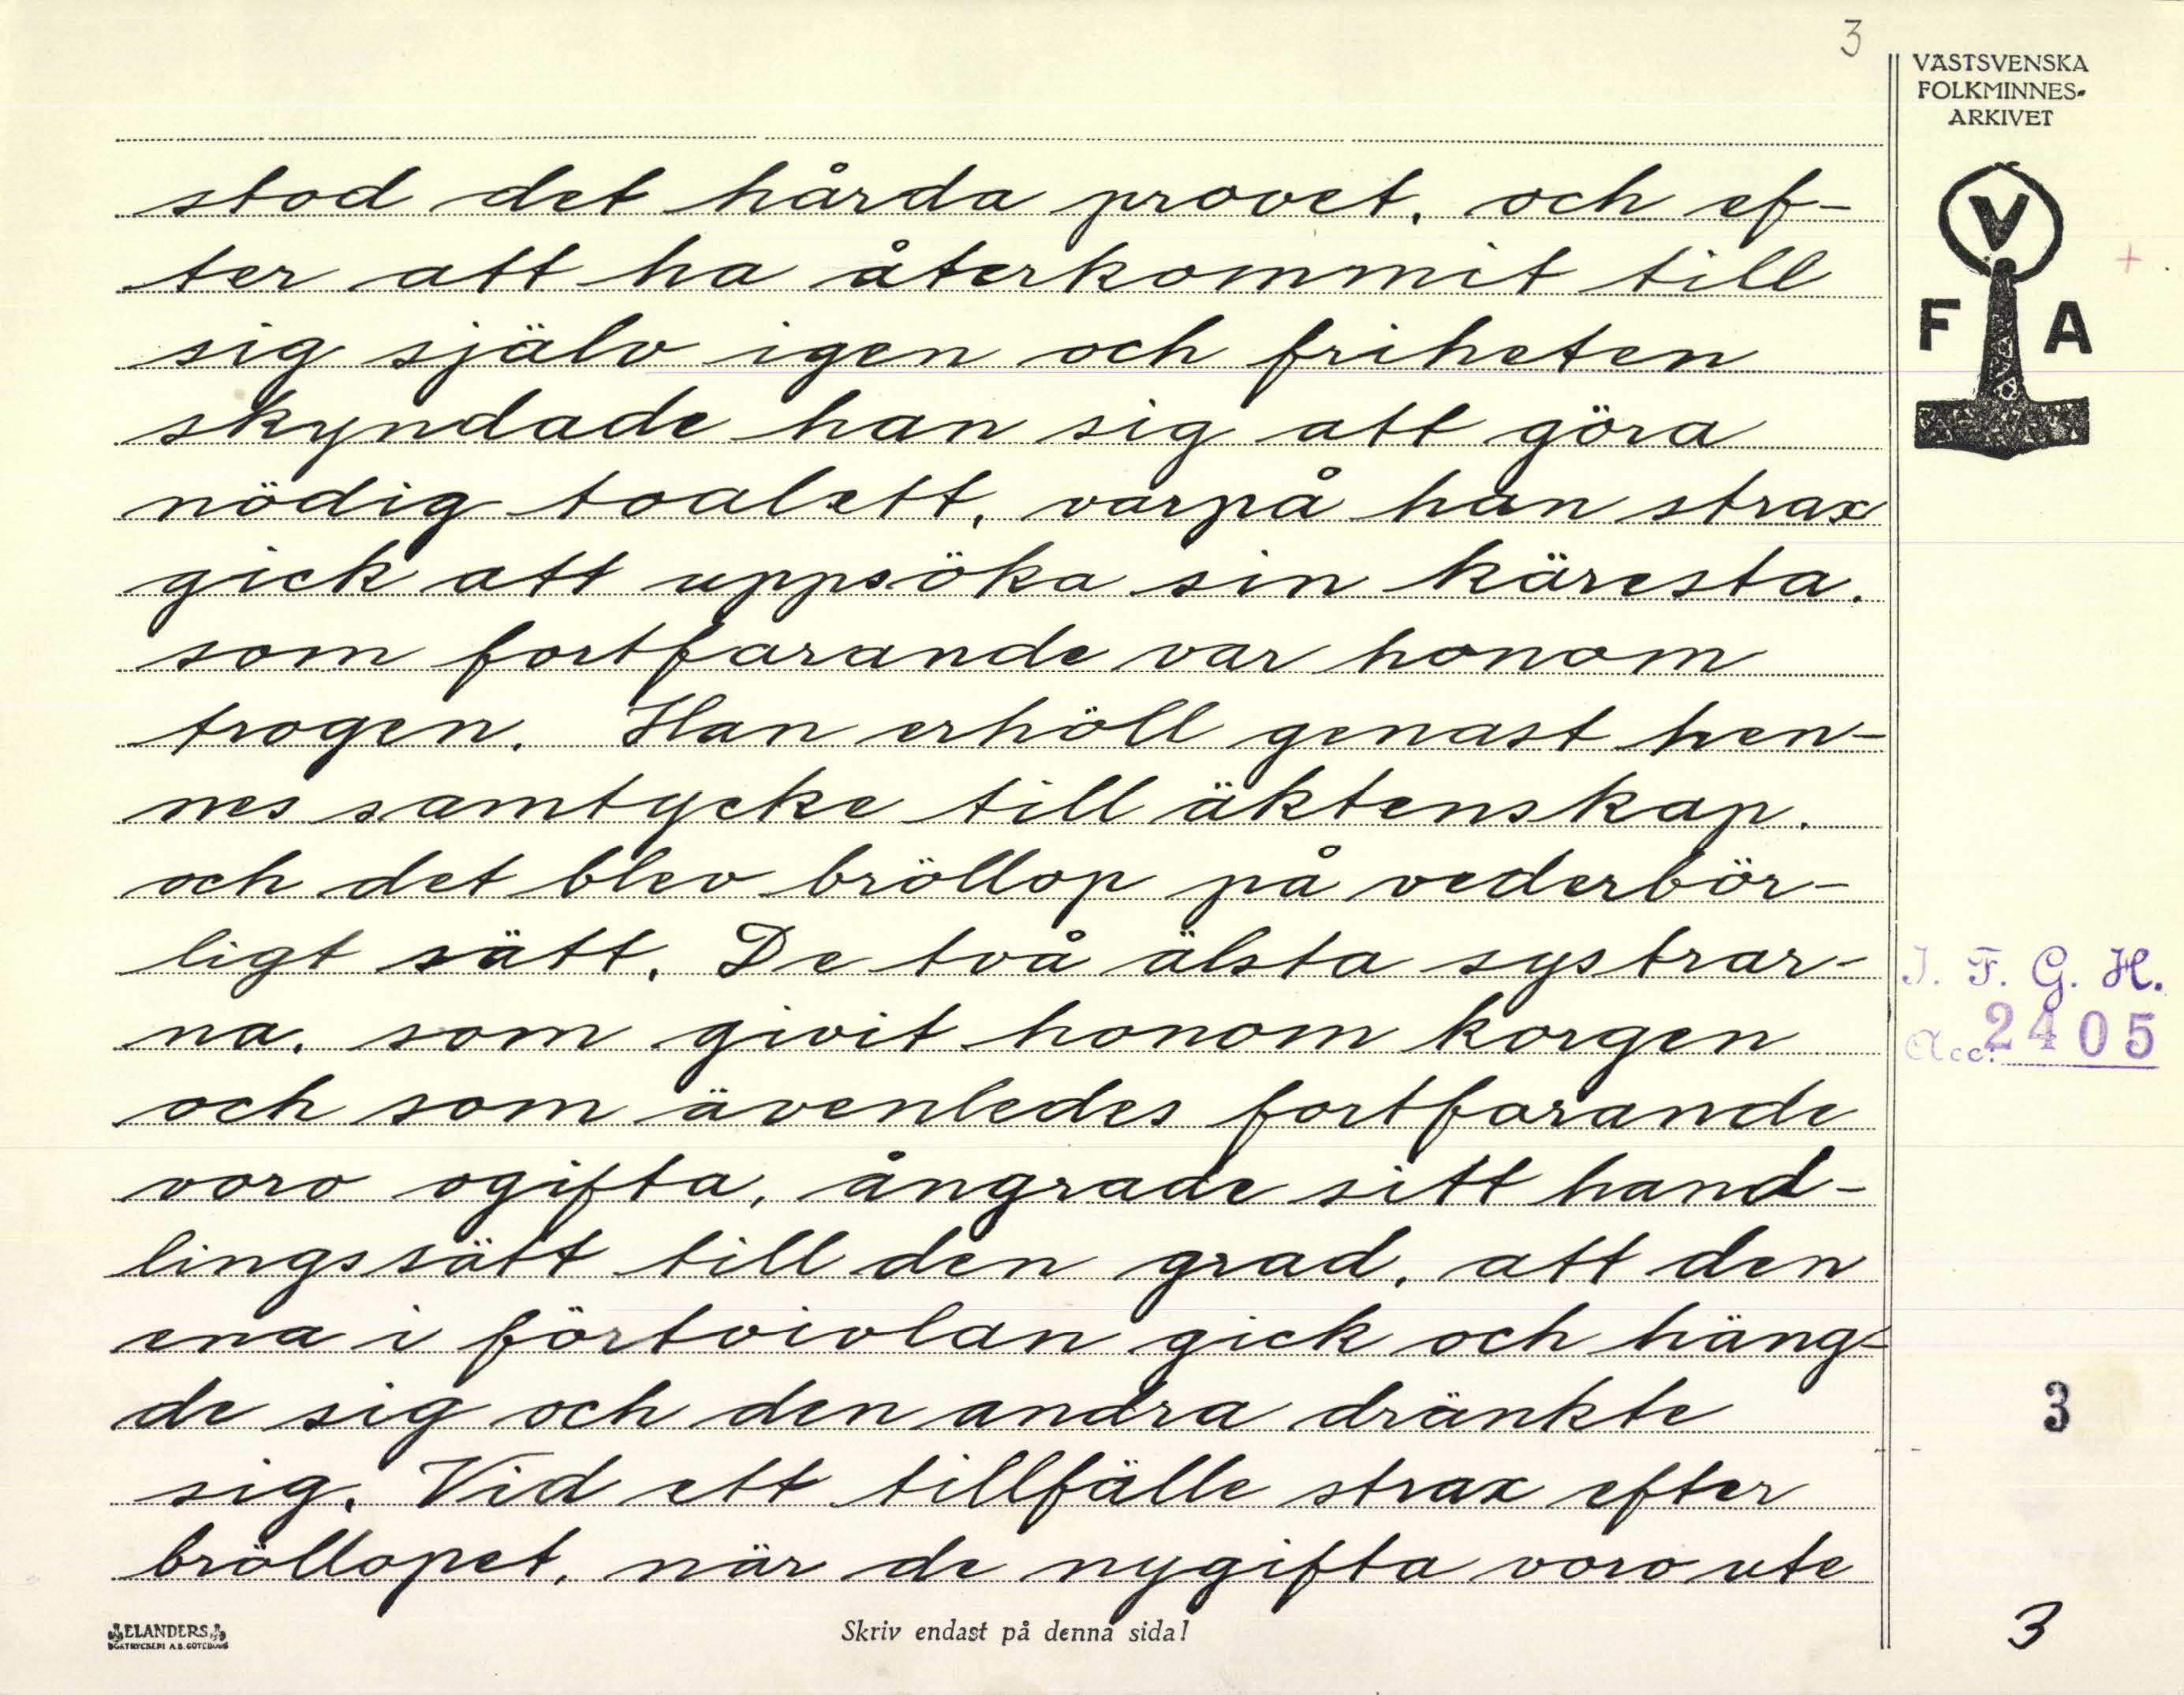 3
VÄSTSVENSKA
FOLKMINNES-
ARKIVET
V
F A
+
stod det hårda provet, och ef-
ter att ha återkommit till
sig själv igen och friheten
skyndade han sig att göra
nödig toalett, varpå han strax
gick att uppsöka sin käresta,
som fortfarande var honom
trogen. Han erhöll genast hen-
nes samtycke till äktenskap,
och det blev bröllop på vederbör-
ligt sätt. De två älsta systrar-
na, som givit honom korgen
och som ävenledes fortfarande
voro ogifta, ångrade sitt hand-
lingssätt till den grad, att den
ena i förtvivlan gick och häng-
de sig och den andra dränkte
sig. Vid ett tillfälle strax efter
bröllopet, när de nygifta voro ute
I. F. G. H.
Acc. 2405
3
3
ELANDERS
BOKTRYCKERI A.B. GÖTEBORG
Skriv endast på denna sida!